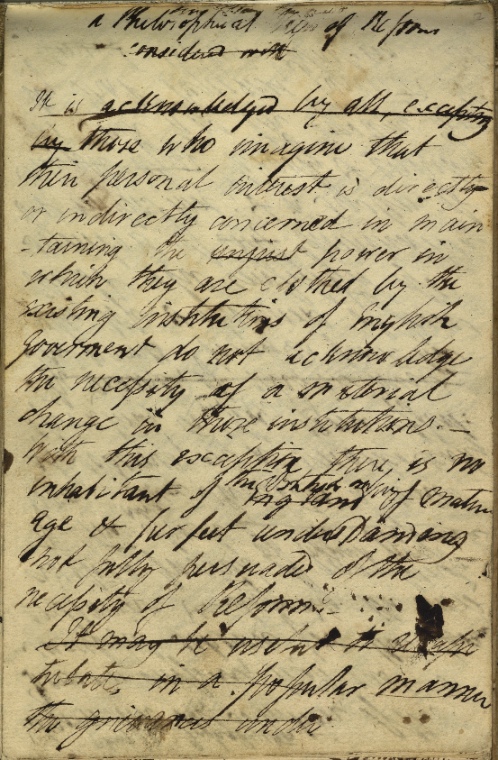 a Philosophical View of Reform
considered with
It is acknowledged by all, excepting
by those who imagine that
their personal interest is directly
or indirectly concerned in main
-taining the unjust power in
which they are clothed by the
existing institutions of English
Goverment do not acknowledge
the necessity of a material
change in those institutions. —
With this exception there is no
inhabitant of the British of mature
age & perfect understanding
not fully persuaded of the
necessity of Reform. —
It may be useful to
in a popular manner
the grievances under